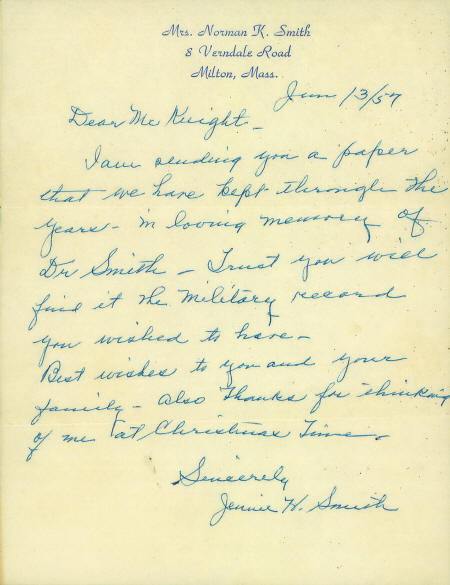 Mrs. Norman K. Smith
8 Verndale Road
Milton, Mass.
Jan 13/57
Dear Mr Knight -
I am sending you a paper
that we have kept through the
years - in loving memory of
Dr Smith - Trust you will
find it the military record
you wished to have -
Best wishes to you and your
family - also thanks for thinking
of me at Christmas Time.
Sincerely
Jennie H. Smith